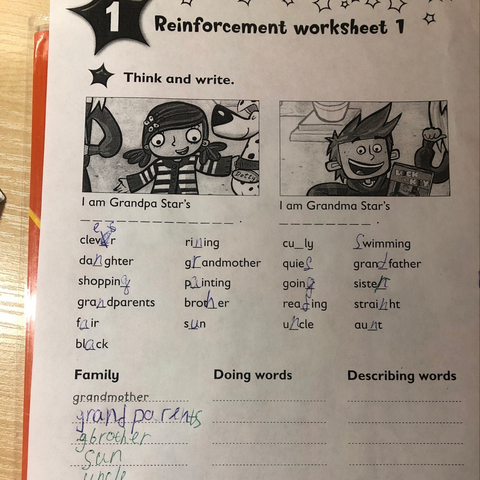 1 Reinforcement worksheet 1
Think and write.
Dotty
I am Grandpa Star's
I am Grandma Star's
clever rining cu_ly Swimming
danghter grandmother quies grandfather
shopping painting going sisten
grandparents brother reading strainht
fair sun uncle aunt
black
Family Doing words Describing words
grandmother
grandparents
gbrother
sun
uncle